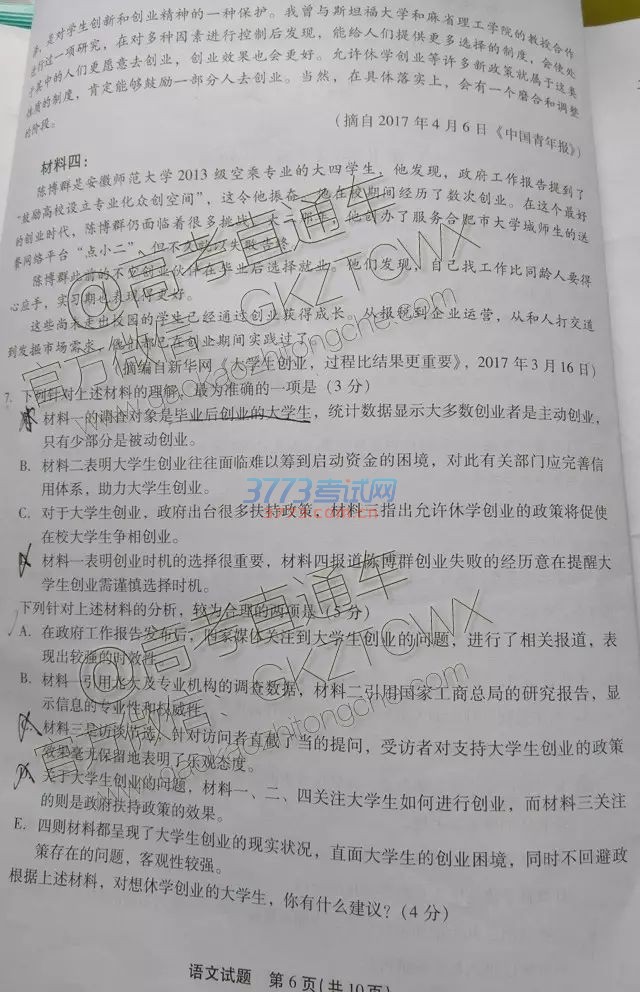 养,是对学生创新和创业精神的一种保护。我曾与斯坦福大学和麻省理工学院的教授合作
进行过一项研究,在对多种因素进行控制后发现,能给人们提供更多选择的制度,会使处
于其中的人们更愿意去创业,创业效果也会更好。允许休学创业等许多新政策就属于这类
性质的制度,肯定能够鼓励一部分人去创业。当然,在具体落实上,会有一个磨合和调整
的阶段。
(摘自 2017 年 4 月 6 日《中国青年报》)
材料四:
陈博群是安徽师范大学 2013 级空乘专业的大四学生,他发现,政府工作报告提到了
“鼓励高校设立专业化众创空间”,这令他振奋。他在校期间经历了数次创业。在这个最好
的创业时代,陈博群仍面临着很多挑战。大二那年,他创办了服务合肥市大学城师生的送
餐网络平台“点小二”,但不久就以失败告终。
陈博群此前的不见创业伙伴在毕业后选择就业。他们发现,自己找工作比同龄人要得
心应手,实习期也表现得更好。
这些尚未走出校园的学生已经通过创业获得成长。从报税到企业运营,从和人打交道
到发掘市场需求,他们都已在创业期间实践过了。
(摘编自新华网《大学生创业,过程比结果更重要》,2017 年 3 月 16 日)
7. 下列针对上述材料的理解,最为准确的一项是(3 分)
材料一的调查对象是毕业后创业的大学生,统计数据显示大多数创业者是主动创业,
只有少部分是被动创业。
B. 材料二表明大学生创业往往面临难以筹到启动资金的困境,对此有关部门应完善信
用体系,助力大学生创业。
C. 对于大学生创业,政府出台很多扶持政策,材料三指出允许休学创业的政策将促使
在校大学生争相创业。
材料一表明创业时机的选择很重要,材料四报道陈博群创业失败的经历意在提醒大
学生创业需谨慎选择时机。
下列针对上述材料的分析,较为合理的两项是(5 分)
A. 在政府工作报告发布后,四家媒体关注到大学生创业的问题,进行了相关报道,表
现出较强的时效性。
B. 材料一引用北大及专业机构的调查数据,材料二引用国家工商总局的研究报告,显
示信息的专业性和权威性。
材料三是访谈节选,针对访问者直截了当的提问,受访者对支持大学生创业的政策
效果毫无保留地表明了乐观态度。
关于大学生创业的问题,材料一、二、四关注大学生如何进行创业,而材料三关注
的则是政府扶持政策的效果。
E. 四则材料都呈现了大学生创业的现实状况,直面大学生的创业困境,同时不回避政
策存在的问题,客观性较强。
根据上述材料,对想休学创业的大学生,你有什么建议?(4 分)
语文试题 第 6 页(共 10 页)
3773考试网
@高考直通车
官方微信:GKZTCWX
www.gaokaozhitongche.com
@高考直通车
官方微信:GKZTCWX
www.gaokaozhitongche.com